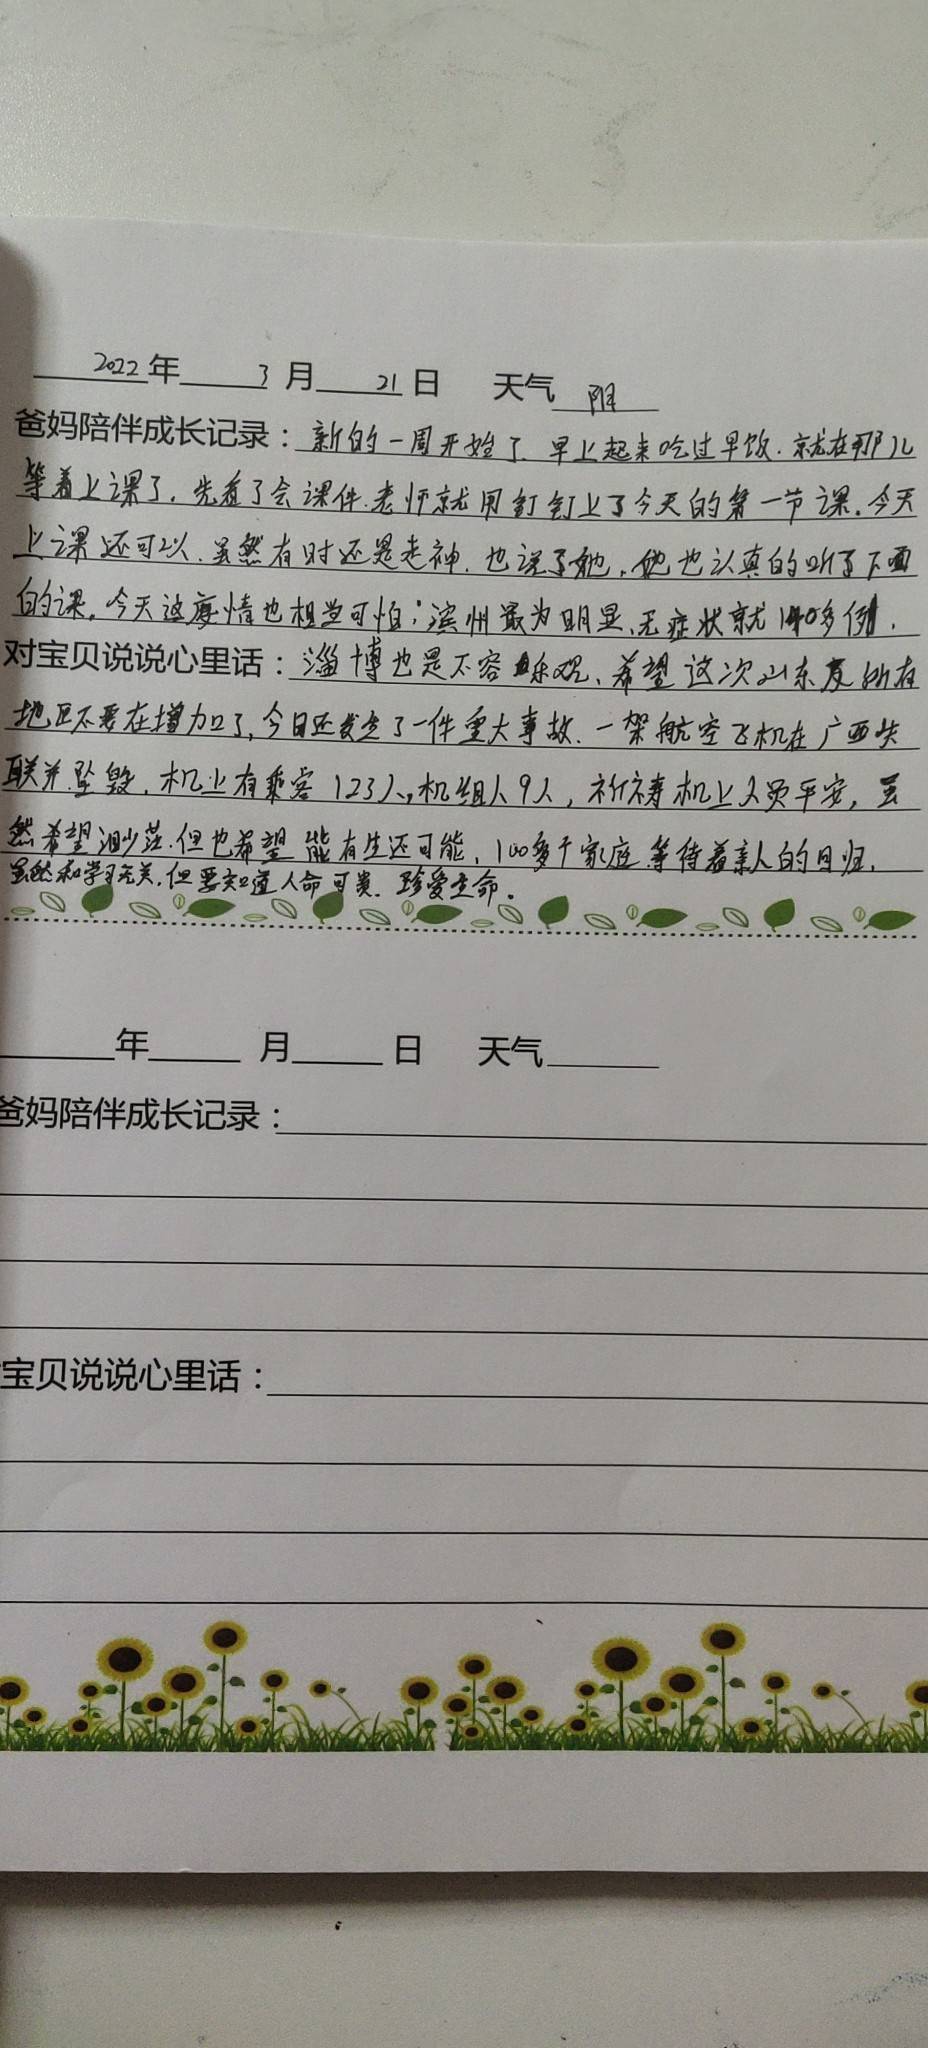 2022年 3月 21日 天气 阴
爸妈陪伴成长记录：新的一周开始了.早上起来吃过早饭.就在那儿
等着上课了.先看了会课件.老师就用钉钉上了今天的第一节课.今天
上课还可以.虽然有时还是走神.也说了她.他也认真的听了下面
的课。今天这疫情也相当可怕；滨州最为明显、无症状就140多例.
对宝贝说说心里话：淄博也是不容乐观、希望这次山东及所在
地区不要在增加了,今日还发生了一件重大事故.一架航空飞机在广西失
联并坠毁.机上有乘客123人,机组人9人,祈祷机上人员平安,虽
然希望渺茫.但也希望能有生还可能,100多个家庭.等待着亲人的回归.
虽然和学习无关,但要知道人命可贵.珍爱生命。
年 月 日 天气
爸妈陪伴成长记录：
宝贝说说心里话：